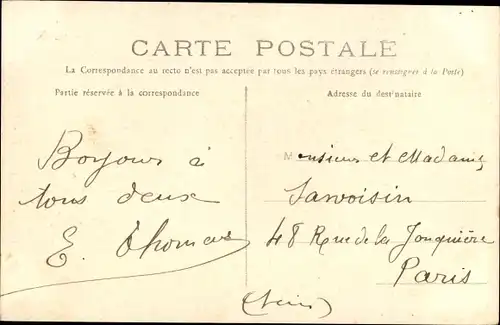 CARTE POSTALE
La Correspondance au recto n'est pas acceptée par tous les pays étrangers (se renseigner à la Poste)
Partie réservée à la correspondance
Adresse du destinataire
Boyours à
tous deux
E. Thomas
Monsieur et Madame
Sarvoisin
48 Rue de la Jonquière
Paris